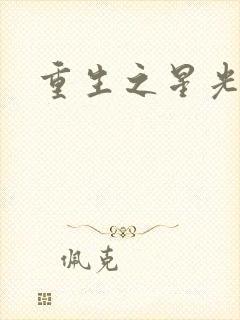 重生之星光
佩克